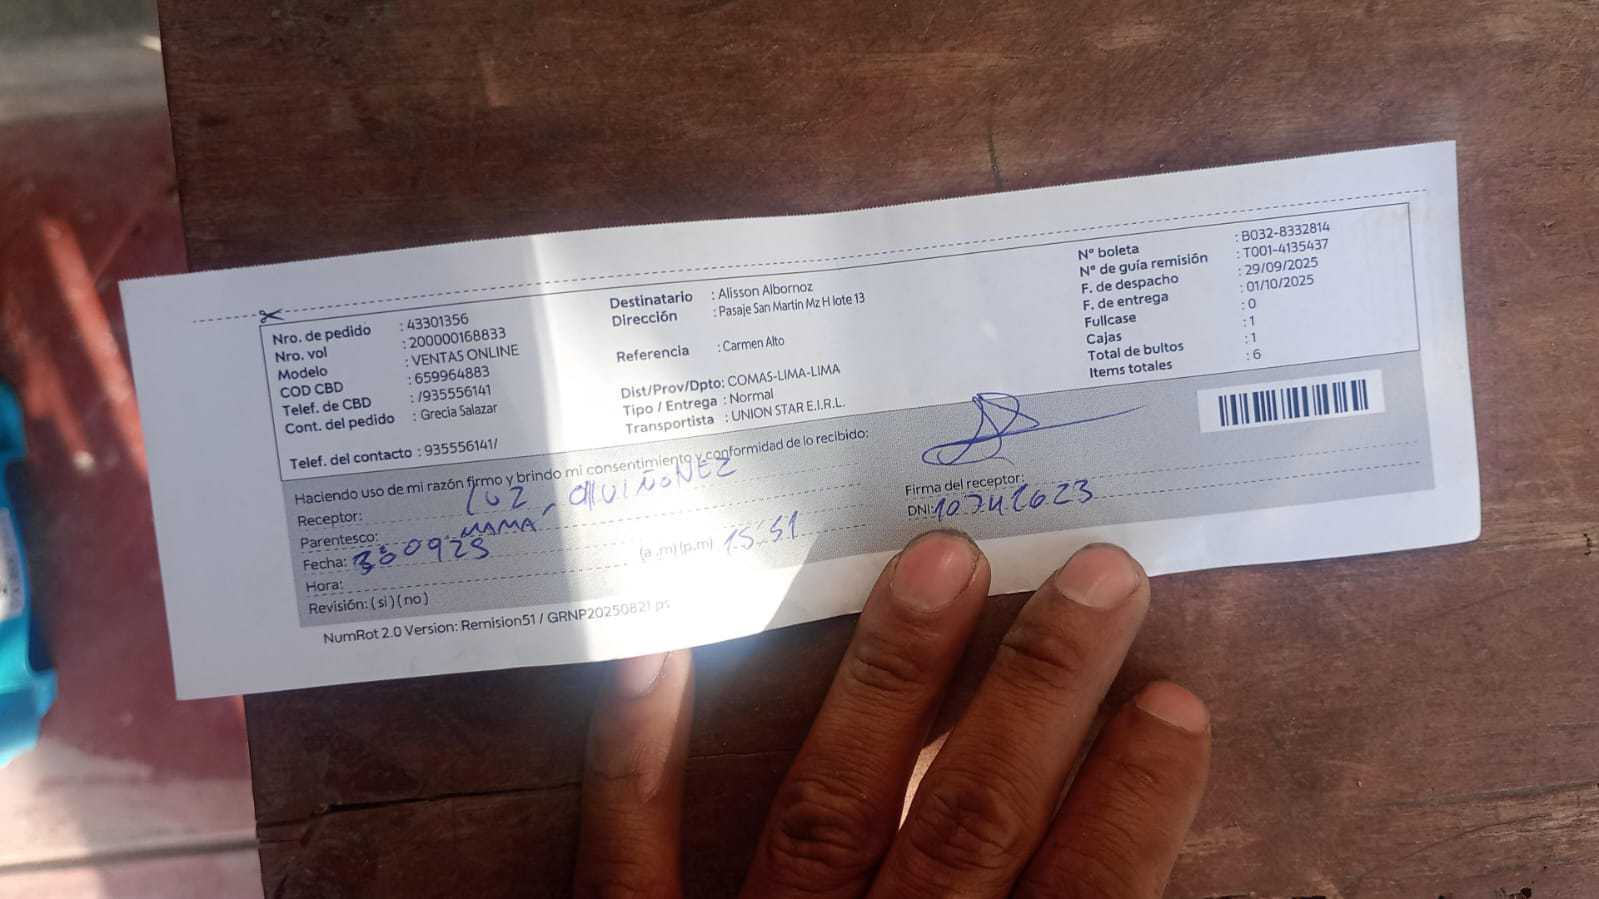 Nro. de pedido : 43301356
Nro. vol : 200000168833
Modelo : VENTAS ONLINE
COD CBD : 659964883
Telef. de CBD : /935556141
Cont. del pedido : Grecia Salazar
Telef. del contacto : 935556141/
Destinatario : Alisson Albornoz
Dirección : Pasaje San Martin Mz H lote 13
Referencia : Carmen Alto
Dist/Prov/Dpto: COMAS-LIMA-LIMA
Tipo / Entrega : Normal
Transportista : UNION STAR E.I.R.L.
N° boleta : B032-8332814
N° de guía remisión : T001-4135437
F. de despacho : 29/09/2025
F. de entrega : 01/10/2025
Fullcase : 0
Cajas : 1
Total de bultos : 1
Items totales : 6
Haciendo uso de mi razón firmo y brindo mi consentimiento y conformidad de lo recibido:
Receptor: LUZ QUIÑONEZ
Parentesco: MAMA
Fecha: 300925
Hora: (a .m) (p.m) 15:51
Revisión: ( si ) ( no )
Firma del receptor:
DNI:
NumRot 2.0 Version: Remision51 / GRNP20250821.ps